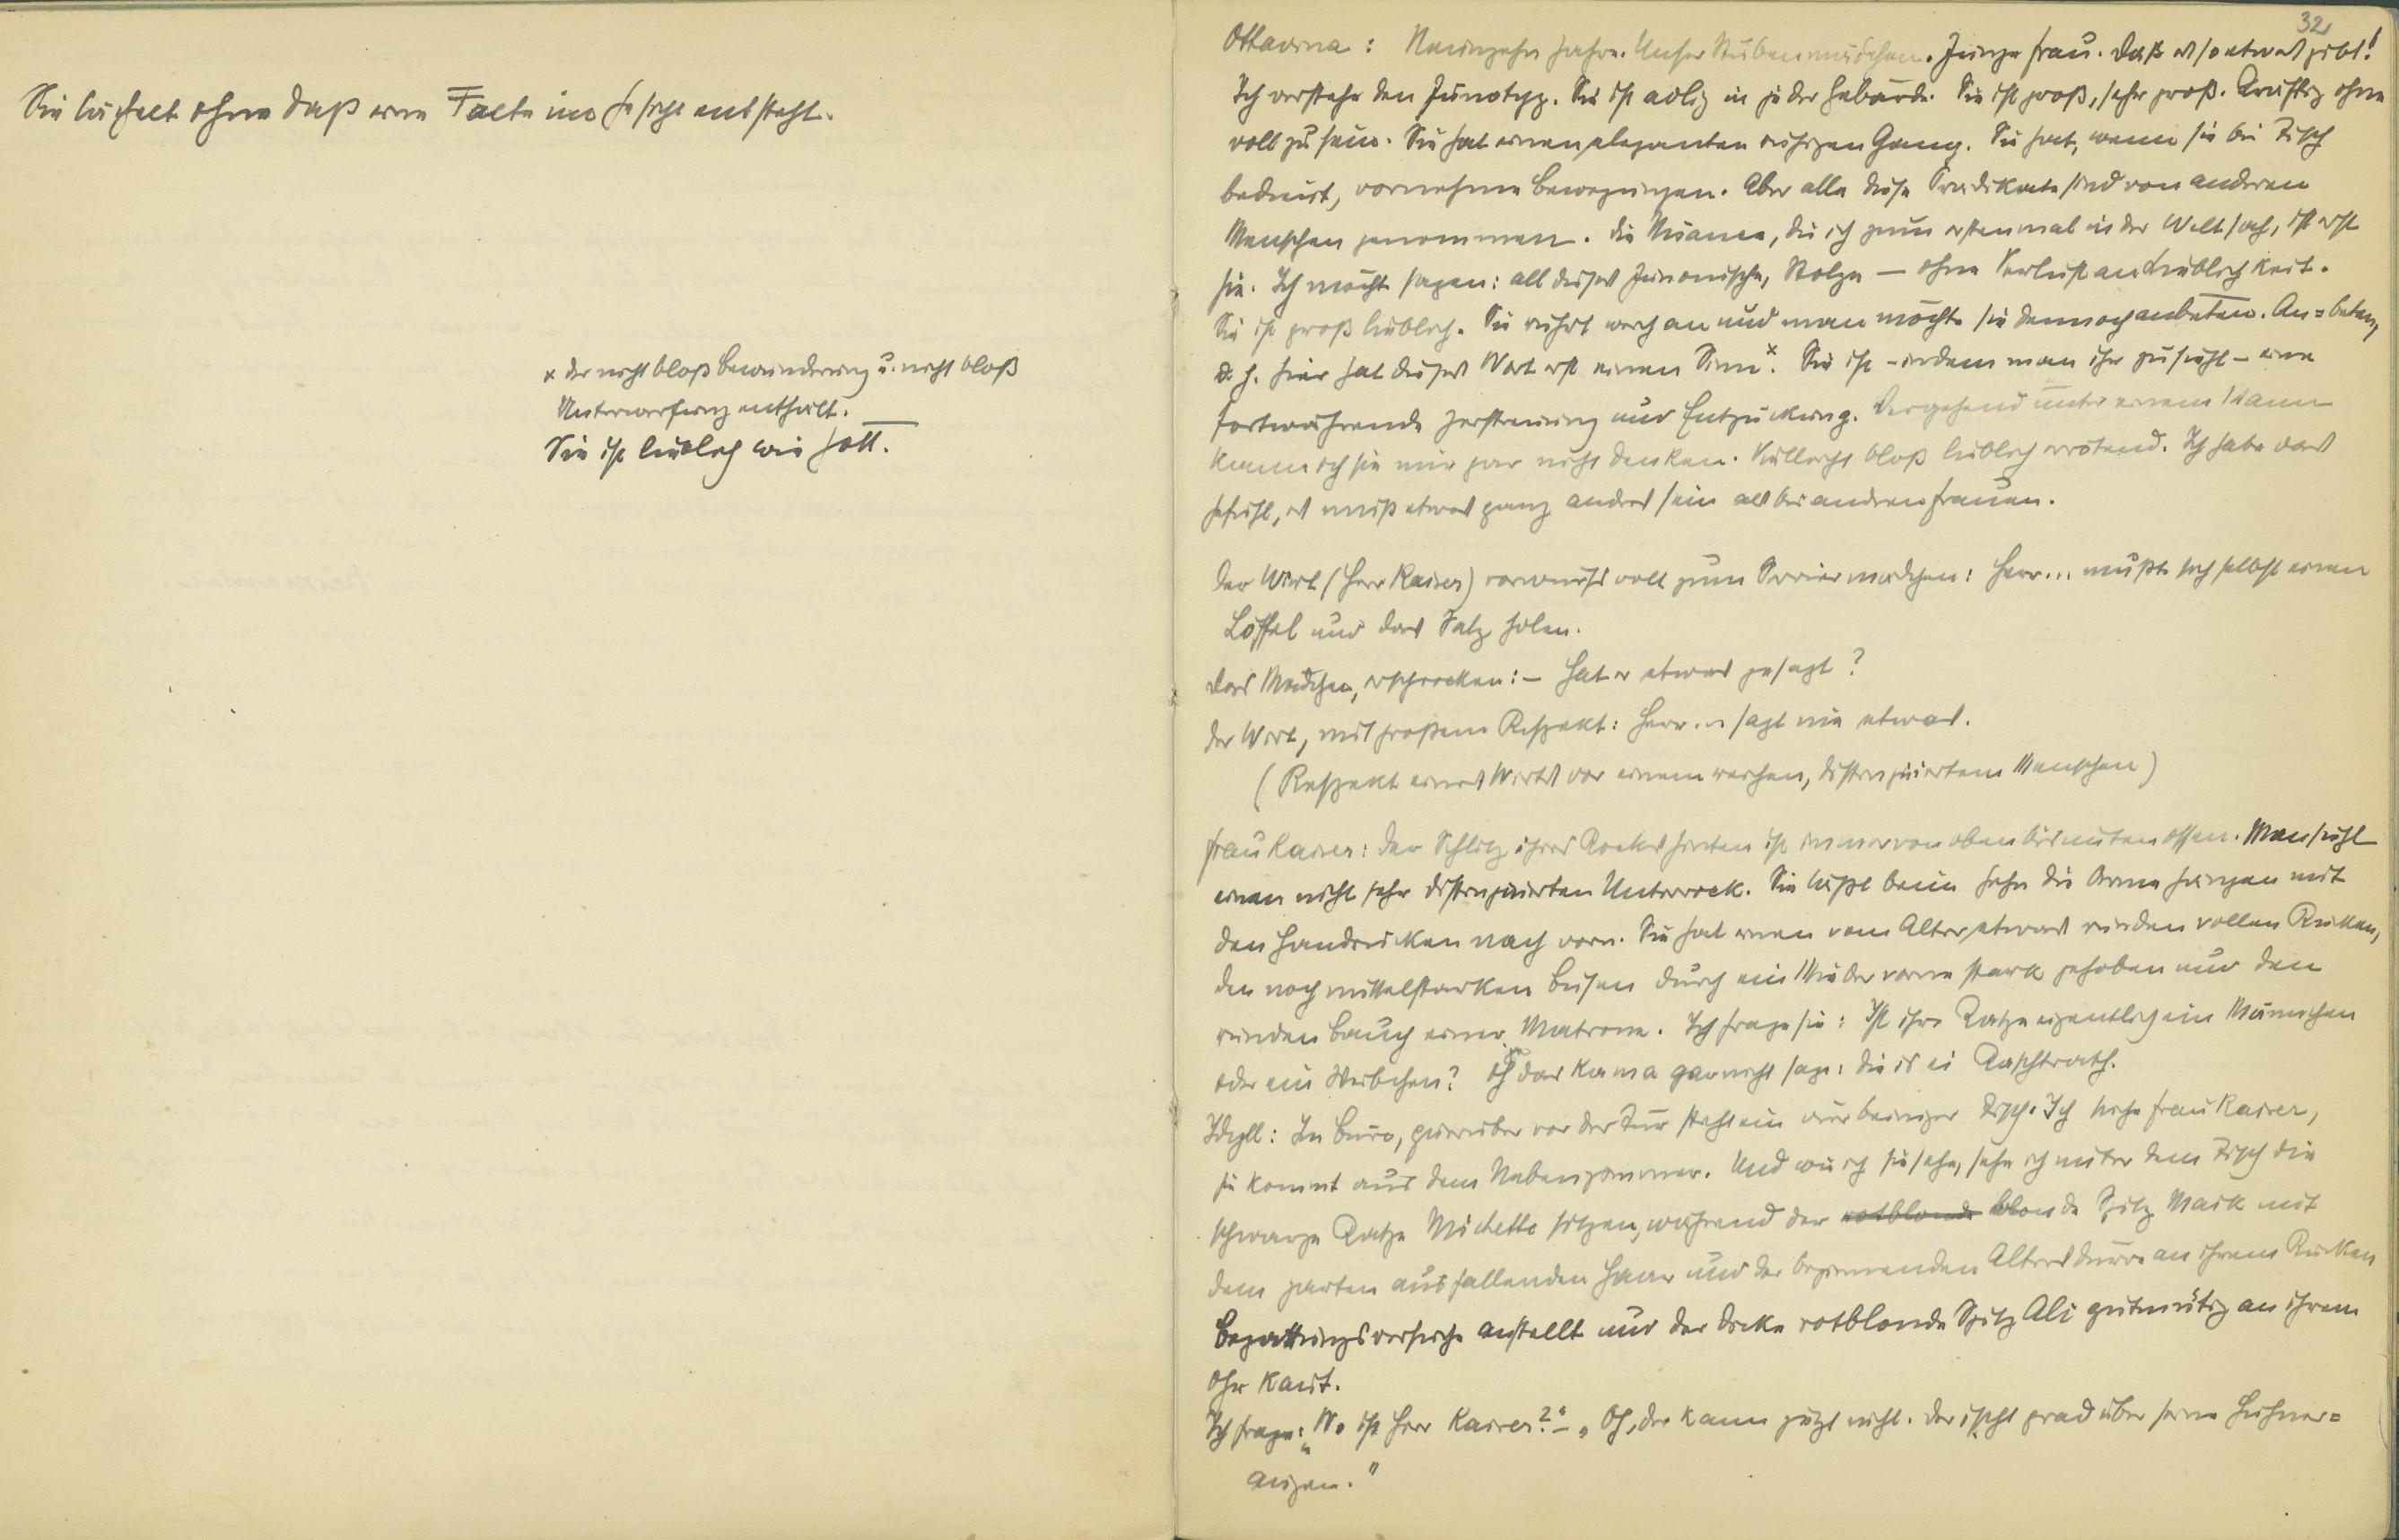 Sie lächelt ohne daß eine Falte im Gesicht entsteht.
x der nicht bloß Bewunderung u. nicht bloß
Unterwerfung enthält.
Sie ist lieblich wie Gott.
32
Ottavina: Neunzehn Jahre. Unser Stubenmädchen. Junge Frau. Daß es so etwas gibt!
Ich verstehe den Junotyp. Sie ist adlig in jeder Gebärde. Sie ist groß, sehr groß. Kräftig ohne
voll zu sein. Sie hat einen eleganten ruhigen Gang. Sie hat, wenn sie bei Tisch
bedient, vornehme Bewegungen. Aber alle diese Prädikate sind von anderen
Menschen genommen. Die Nuance, die ich zum erstenmal in der Welt sah, ist erst
sie. Ich möchte sagen: all dieses Junonische, Stolze – ohne Verlust an Lieblichkeit.
Sie ist groß lieblich. Sie rührt weich an und man möchte sie dennoch anbeten. An=beten,
d. h. hier hat dieses Wort erst einen Sinn x. Sie ist – indem man ihr zusieht – eine
fortwährende Zerstreuung und Entzückung. Vergehend unter einem Mann
kann ich sie mir gar nicht denken. Vielleicht bloß lieblich errötend. Ich habe das
Gefühl, es muß etwas ganz andres sein als bei andren Frauen.
Der Wirt (Herr Kaiser) vorwurfsvoll zum Serviermädchen: Herr... mußte sich selbst einen
Löffel und das Salz holen.
Das Mädchen, erschrocken: – Hat er etwas gesagt?
Der Wirt, mit großem Respekt: Herr... sagt nie etwas.
(Respekt eines Wirts vor einem reichen, distinguierten Menschen)
Frau Kaiser: Der Schlitz ihres Rockes hinten ist immer von oben bis unten offen. Man sieht
einen nicht sehr distinguierten Unterrock. Sie läßt beim Gehn die Arme hängen mit
den Handrücken nach vorn. Sie hat einen vom Alter etwas runden vollen Rücken,
den noch mittelstarken Busen durch ein Mieder vorne stark gehoben und den
runden Bauch einer Matrone. Ich frage sie: Ist ihre Katze eigentlich ein Männchen
oder ein Weibchen? Oh das kama gar nicht sage: die is ei Kaschtrath.
Idyll: Im Büro, gegenüber vor der Tür steht ein vierbeiniger Tisch. Ich suche Frau Kaiser,
sie kommt aus dem Nebenzimmer. Und wie ich sie sehe, sehe ich unter dem Tisch die
schwarze Katze Michette sitzen, während der rotblonde blonde Spitz Maik mit
dem zarten ausfallenden Haar und der beginnenden Altersdürre an ihrem Rücken
Begattungsversuche anstellt und der dicke rotblonde Spitz Ali gutmütig an ihrem
Ohr kaut.
Ich frage: „Wo ist Herr Kaiser?" – „Oh, der kann jetzt nicht. Der ischt grad über seine Hühner=
augen."